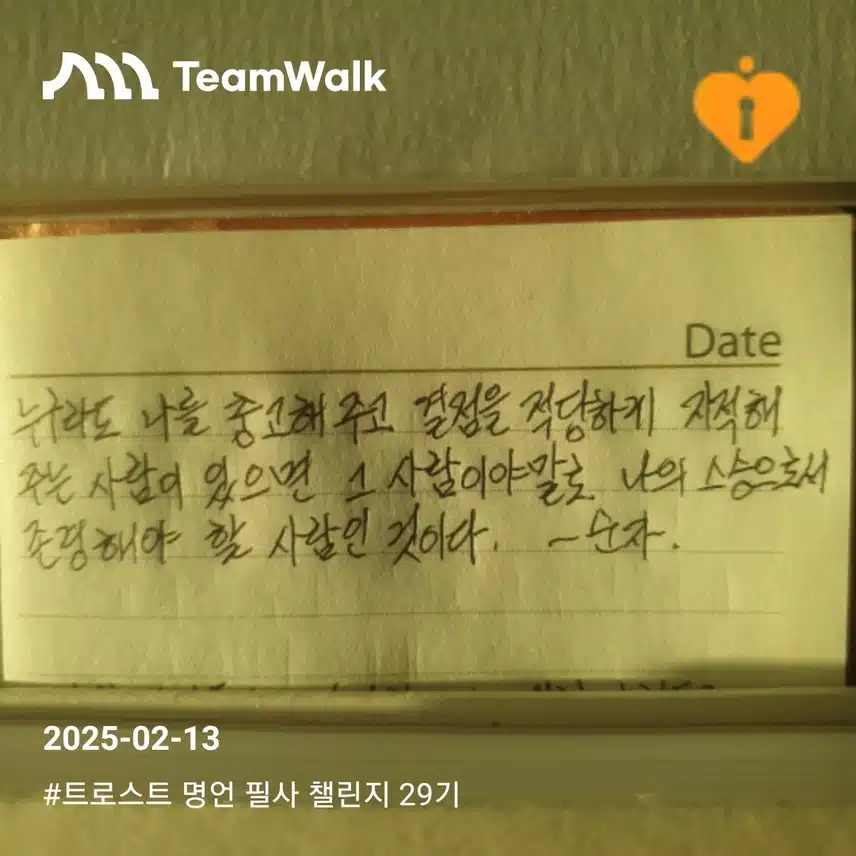 TeamWalk
Date
누구라도 나를 충고해 주고 결점을 적당하게 지적해
주는 사람이 있으면 그 사람이야말로 나의 스승으로서
존경해야 할 사람인 것이다. ~순자.
2025-02-13
#트로스트 명언 필사 챌린지 29기